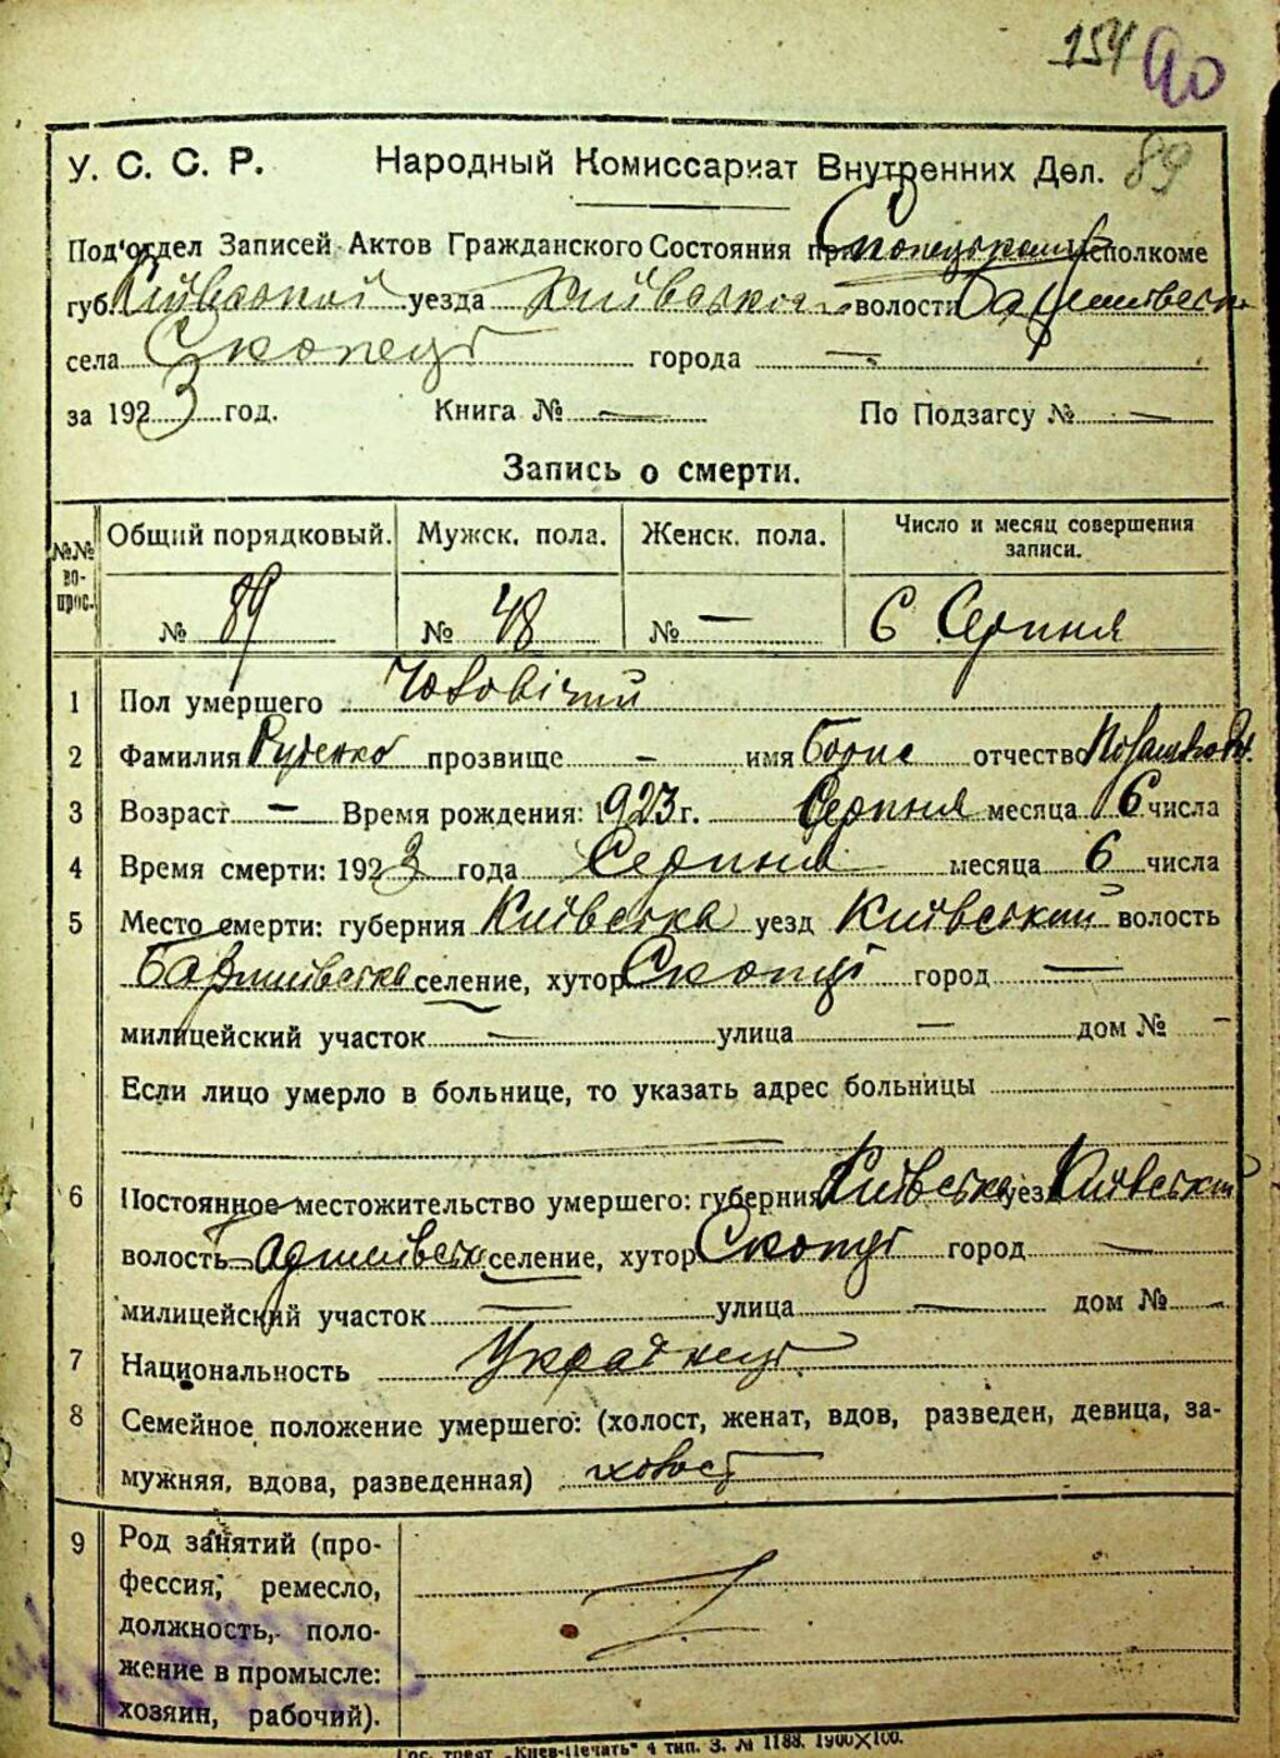 154 90
У. С. С. Р. Народный Комиссариат Внутренних Дел. 89
Под'отдел Записей Актов Гражданского Состояния при Исполкоме
губ. Київської уезда Київського волости
села Скопці города —
за 1923 год. Книга № — По Подзагсу № —
Запись о смерти.
№№ вопрос. Общий порядковый. Мужск. пола. Женск. пола. Число и месяц совершения записи.
№ 89 № 48 № — 6 Серпня
1 Пол умершего Чоловічий
2 Фамилия Руденко прозвище — имя Борис отчество
3 Возраст — Время рождения: 1923 г. Серпня месяца 6 числа
4 Время смерти: 1923 года Серпня месяца 6 числа
5 Место смерти: губерния Київська уезд Київський волость
селение, хутор Скопці город —
милицейский участок — улица — дом № —
Если лицо умерло в больнице, то указать адрес больницы
6 Постоянное местожительство умершего: губерния Київська уезд Київський
волость селение, хутор Скопці город —
милицейский участок — улица — дом № —
7 Национальность Українець
8 Семейное положение умершего: (холост, женат, вдов, разведен, девица, за-
мужняя, вдова, разведенная) холост
9 Род занятий (про-
фессия, ремесло,
должность, поло-
жение в промысле:
хозяин, рабочий).
Гос. трест „Киев-Печать" 4 тип. З. № 1188. 1900×100.